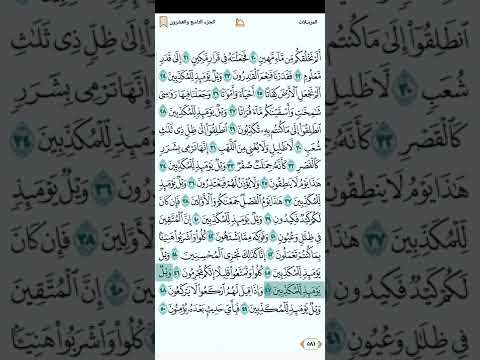 المرسلات الجزء التاسع والعشرون
أَلَمْ نَخْلُقكُّم مِّن مَّآءٍ مَّهِينٍ ٢٠ فَجَعَلْنَٰهُ فِى قَرَارٍ مَّكِينٍ ٢١ إِلَىٰ قَدَرٍ
مَّعْلُومٍ ٢٢ فَقَدَرْنَا فَنِعْمَ ٱلْقَٰدِرُونَ ٢٣ وَيْلٌ يَوْمَئِذٍ لِّلْمُكَذِّبِينَ ٢٤
أَلَمْ نَجْعَلِ ٱلْأَرْضَ كِفَاتًا ٢٥ أَحْيَآءً وَأَمْوَٰتًا ٢٦ وَجَعَلْنَا فِيهَا رَوَٰسِىَ
شَٰمِخَٰتٍ وَأَسْقَيْنَٰكُم مَّآءً فُرَاتًا ٢٧ وَيْلٌ يَوْمَئِذٍ لِّلْمُكَذِّبِينَ ٢٨
ٱنطَلِقُوٓا۟ إِلَىٰ مَا كُنتُم بِهِۦ تُكَذِّبُونَ ٢٩ ٱنطَلِقُوٓا۟ إِلَىٰ ظِلٍّ ذِى ثَلَٰثِ
شُعَبٍ ٣٠ لَّا ظَلِيلٍ وَلَا يُغْنِى مِنَ ٱللَّهَبِ ٣١ إِنَّهَا تَرْمِى بِشَرَرٍ
كَٱلْقَصْرِ ٣٢ كَأَنَّهُۥ جِمَٰلَتٌ صُفْرٌ ٣٣ وَيْلٌ يَوْمَئِذٍ لِّلْمُكَذِّبِينَ ٣٤
هَٰذَا يَوْمُ لَا يَنطِقُونَ ٣٥ وَلَا يُؤْذَنُ لَهُمْ فَيَعْتَذِرُونَ ٣٦ وَيْلٌ يَوْمَئِذٍ
لِّلْمُكَذِّبِينَ ٣٧ هَٰذَا يَوْمُ ٱلْفَصْلِ جَمَعْنَٰكُمْ وَٱلْأَوَّلِينَ ٣٨ فَإِن كَانَ
لَكُمْ كَيْدٌ فَكِيدُونِ ٣٩ وَيْلٌ يَوْمَئِذٍ لِّلْمُكَذِّبِينَ ٤٠ إِنَّ ٱلْمُتَّقِينَ
فِى ظِلَٰلٍ وَعُيُونٍ ٤١ وَفَوَٰكِهَ مِمَّا يَشْتَهُونَ ٤٢ كُلُوا۟ وَٱشْرَبُوا۟ هَنِيٓـًٔۢا
بِمَا كُنتُمْ تَعْمَلُونَ ٤٣ إِنَّا كَذَٰلِكَ نَجْزِى ٱلْمُحْسِنِينَ ٤٤ وَيْلٌ
يَوْمَئِذٍ لِّلْمُكَذِّبِينَ ٤٥ كُلُوا۟ وَتَمَتَّعُوا۟ قَلِيلًا إِنَّكُم مُّجْرِمُونَ ٤٦ وَيْلٌ
يَوْمَئِذٍ لِّلْمُكَذِّبِينَ ٤٧ وَإِذَا قِيلَ لَهُمُ ٱرْكَعُوا۟ لَا يَرْكَعُونَ ٤٨
وَيْلٌ يَوْمَئِذٍ لِّلْمُكَذِّبِينَ ٤٩ فَبِأَىِّ حَدِيثٍۭ بَعْدَهُۥ يُؤْمِنُونَ ٥٠
٥٨١